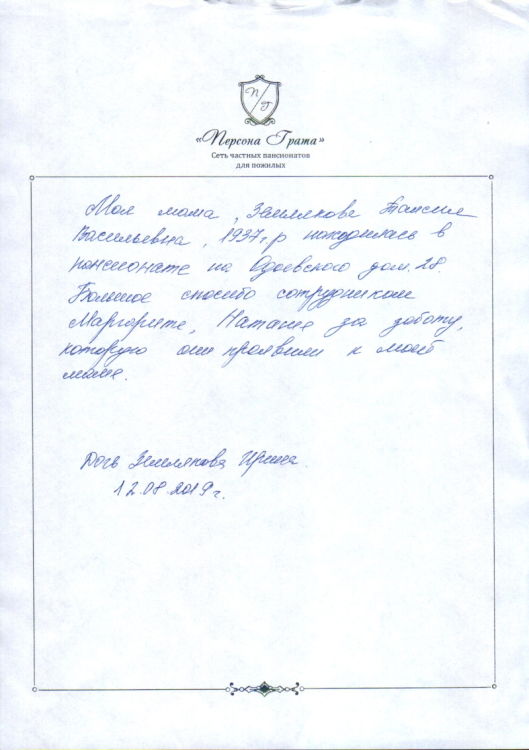 П/Г
«Персона Грата»
Сеть частных пансионатов
для пожилых
Моя мама, Землякова Таисия
Васильевна, 1937г.р находилась в
пансионате на Одоевского дом.28.
Большое спасибо сотрудникам
Маргарите, Наташе за заботу,
которую они проявили к моей
маме.
Дочь Землякова Ирина.
12.08.2019г.